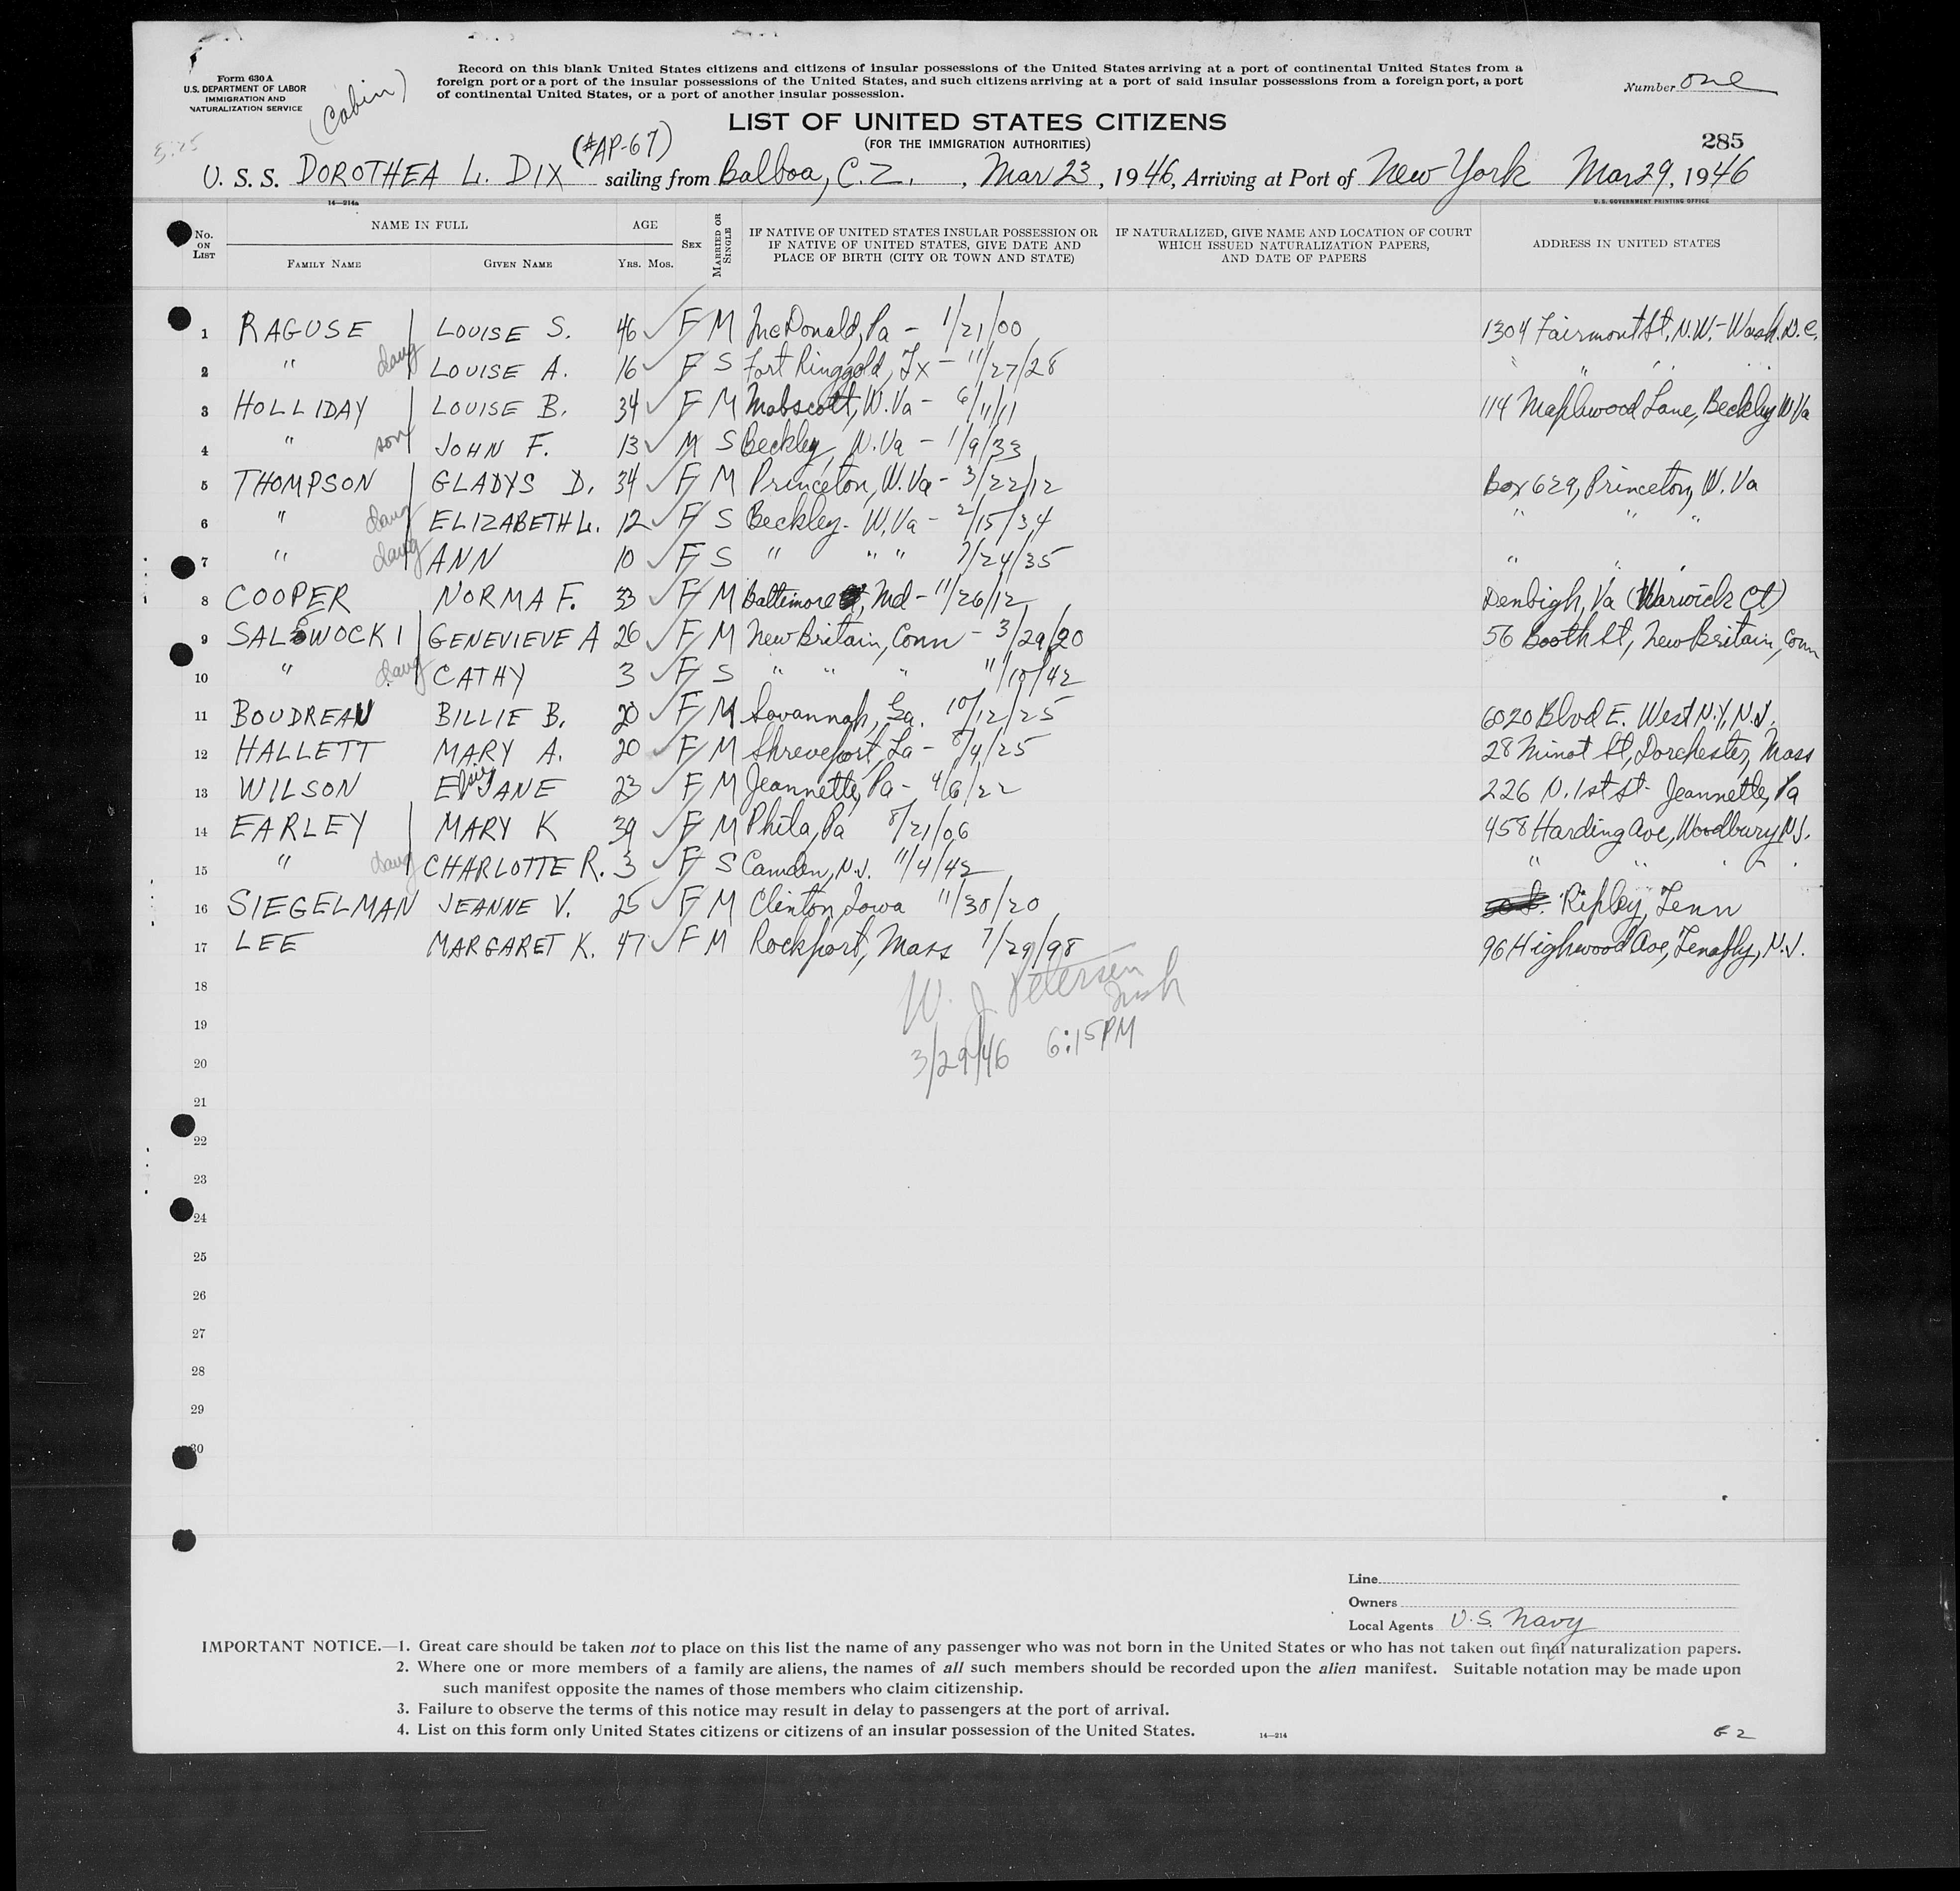 Form 630 A
U.S. DEPARTMENT OF LABOR
IMMIGRATION AND
NATURALIZATION SERVICE
(Cabin)
Record on this blank United States citizens and citizens of insular possessions of the United States arriving at a port of continental United States from a
foreign port or a port of the insular possessions of the United States, and such citizens arriving at a port of said insular possessions from a foreign port, a port
of continental United States, or a port of another insular possession.
Number one
LIST OF UNITED STATES CITIZENS
(FOR THE IMMIGRATION AUTHORITIES)
285
(#AP-67)
U. S. S. DOROTHEA L. DIX sailing from Balboa, C.Z., Mar 23, 1946, Arriving at Port of New York Mar 29, 1946
14—214a
U. S. GOVERNMENT PRINTING OFFICE
No. ON LIST
NAME IN FULL
FAMILY NAME GIVEN NAME
AGE
YRS. MOS.
SEX
MARRIED OR SINGLE
IF NATIVE OF UNITED STATES INSULAR POSSESSION OR
IF NATIVE OF UNITED STATES, GIVE DATE AND
PLACE OF BIRTH (CITY OR TOWN AND STATE)
IF NATURALIZED, GIVE NAME AND LOCATION OF COURT
WHICH ISSUED NATURALIZATION PAPERS,
AND DATE OF PAPERS
ADDRESS IN UNITED STATES
1 RAGUSE LOUISE S. 46 F M McDonald, Pa - 1/21/00 1304 Fairmont St, N.W.- Wash. D.C.
2 " daug LOUISE A. 16 F S Fort Ringgold, Tx - 11/27/28 " " " "
3 HOLLIDAY LOUISE B. 34 F M Mabscott, W.Va - 6/11/11 114 Maplewood Lane, Beckley W.Va
4 " son JOHN F. 13 M S Beckley, W.Va - 1/9/33
5 THOMPSON GLADYS D. 34 F M Princeton, W.Va - 3/22/12 Box 629, Princeton, W. Va
6 " daug ELIZABETH L. 12 F S Beckley - W.Va - 2/15/34 " " "
7 " daug ANN 10 F S " " " 7/24/35 " " "
8 COOPER NORMA F. 33 F M Baltimore, Md - 11/26/12 Denbigh, Va (Warwick Ct)
9 SALSWOCKI GENEVIEVE A 26 F M New Britain, Conn - 3/29/20 56 Booth St, New Britain, Conn
10 " daug CATHY 3 F S " " " 11/10/42
11 BOUDREAU BILLIE B. 20 F M Savannah, Ga. 10/12/25 6020 Blvd E. West N.Y, N.J.
12 HALLETT MARY A. 20 F M Shreveport, La - 8/4/25 28 Minot St, Dorchester, Mass
13 WILSON Elsie JANE 23 F M Jeannette, Pa - 4/6/22 226 N. 1st St - Jeannette, Pa
14 EARLEY MARY K 39 F M Phila, Pa 8/21/06 458 Harding Ave, Woodbury N.J.
15 " daug CHARLOTTE R. 3 F S Camden, N.J. 11/4/42 " " " "
16 SIEGELMAN JEANNE V. 25 F M Clinton, Iowa 11/30/20 Ripley, Tenn
17 LEE MARGARET K. 47 F M Rockport, Mass 7/29/98 96 Highwood Ave, Tenafly, N.J.
18
W. J. Petersen
19
3/29/46 6:15PM
20
21
22
23
24
25
26
27
28
29
30
Line
Owners
Local Agents U.S. Navy
IMPORTANT NOTICE.—1. Great care should be taken not to place on this list the name of any passenger who was not born in the United States or who has not taken out final naturalization papers.
2. Where one or more members of a family are aliens, the names of all such members should be recorded upon the alien manifest. Suitable notation may be made upon
such manifest opposite the names of those members who claim citizenship.
3. Failure to observe the terms of this notice may result in delay to passengers at the port of arrival.
4. List on this form only United States citizens or citizens of an insular possession of the United States.
14—214
G 2